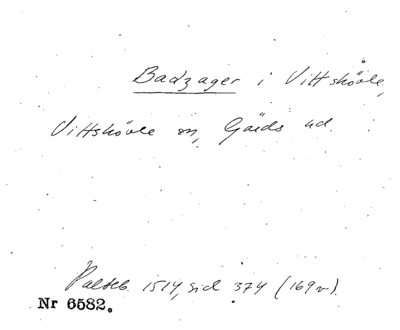 Badzager i Vittskövle,
Vittskövle sn, Gärds hd.
Palteb. 1514, sid 374 (169v).
Nr 6582.